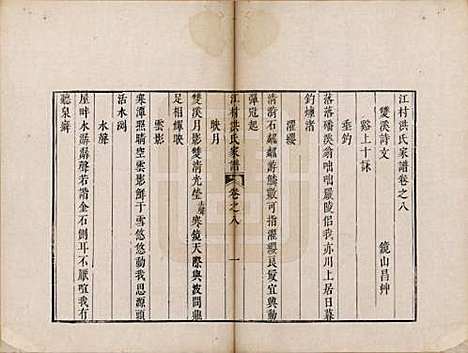 江村洪氏家譜卷之八
雙溪詩文　鏡山昌艸
谿上十詠
垂釣
落落磻溪翁咄咄嚴陵侶我亦川上居日暮
釣煙渚
濯纓
清漪石齦齦游鱗數可指濯纓良可宜興動
彈冠起
江村洪氏家譜　卷之八　一
映月
雙溪月影雙清光瑩寒鏡天際與波間
足相輝映
雲影
寒潭燕晴空雲影鮮于雪悠悠動我思源頭
活水洌
水聲
屋畔水潺潺聲石諧金石側耳不厭喧我為
聽泉癖